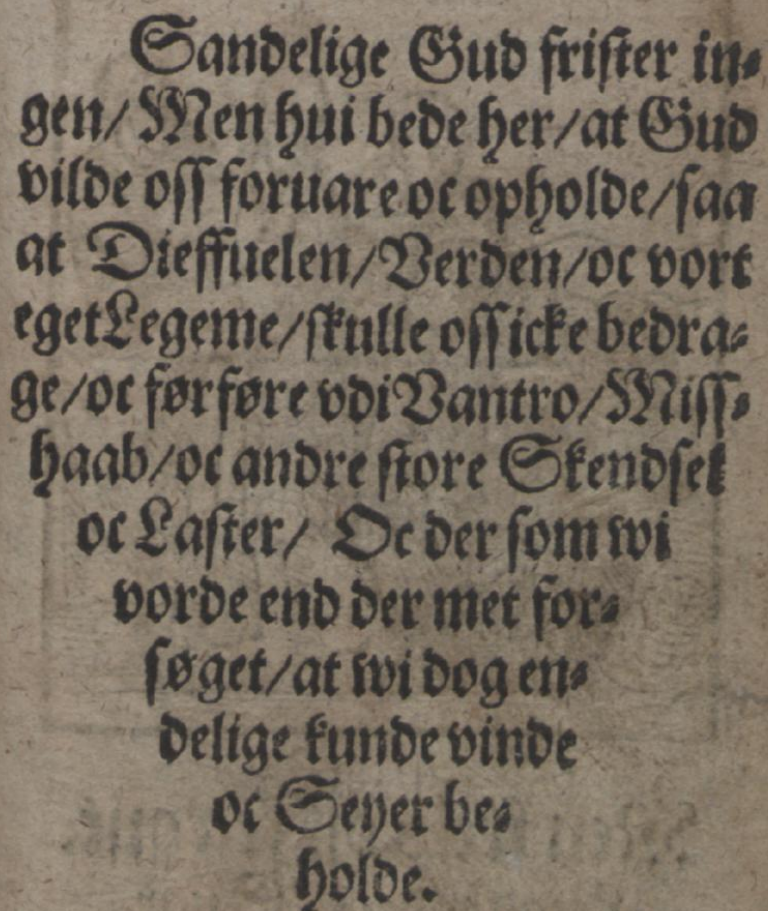 Sandelige Gud frister in⸗
gen/ Men hui bede her/ at Gud
vilde oss foruare oc opholde/ saa
at Dieffuelen/ Verden/ oc vort
eget Legeme/ skulle oss icke bedra⸗
ge/ oc før føre vdi Vantro/ Miss⸗
haab/ oc andre store Skendsel
oc Laster/ Oc der som wi
vorde end der met for⸗
søget/ at wi dog en⸗
delige kunde vinde
oc Seyer be⸗
holde.